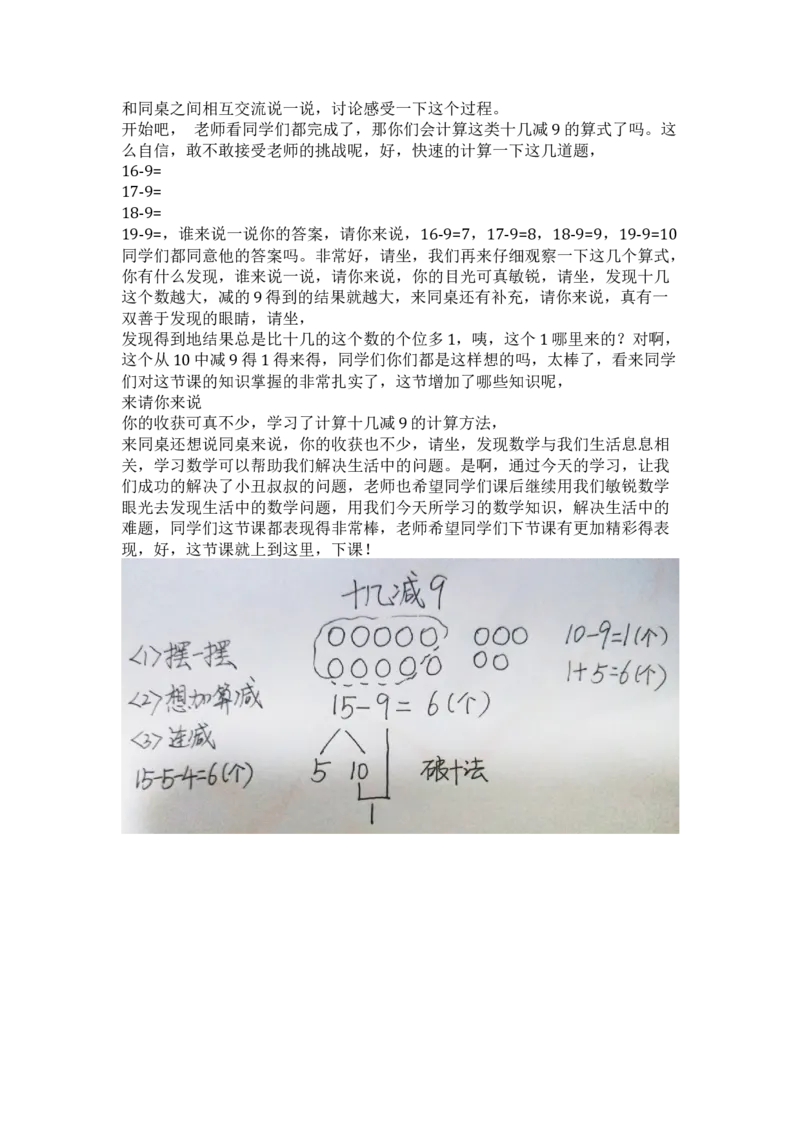 和同桌之间相互交流说一说，讨论感受一下这个过程。
开始吧， 老师看同学们都完成了，那你们会计算这类十几减9的算式了吗。这
么自信，敢不敢接受老师的挑战呢，好，快速的计算一下这几道题，
16-9=
17-9=
18-9=
19-9=，谁来说一说你的答案，请你来说，16-9=7，17-9=8，18-9=9，19-9=10
同学们都同意他的答案吗。非常好，请坐，我们再来仔细观察一下这几个算式，
你有什么发现，谁来说一说，请你来说，你的目光可真敏锐，请坐，发现十几
这个数越大，减的9得到的结果就越大，来同桌还有补充，请你来说，真有一
双善于发现的眼睛，请坐，
发现得到地结果总是比十几的这个数的个位多1，咦，这个1哪里来的？对啊，
这个从10中减9得1得来得，同学们你们都是这样想的吗，太棒了，看来同学
们对这节课的知识掌握的非常扎实了，这节增加了哪些知识呢，
来请你来说
你的收获可真不少，学习了计算十几减9的计算方法，
来同桌还想说同桌来说，你的收获也不少，请坐，发现数学与我们生活息息相
关，学习数学可以帮助我们解决生活中的问题。是啊，通过今天的学习，让我
们成功的解决了小丑叔叔的问题，老师也希望同学们课后继续用我们敏锐数学
眼光去发现生活中的数学问题，用我们今天所学习的数学知识，解决生活中的
难题，同学们这节课都表现得非常棒，老师希望同学们下节课有更加精彩得表
现，好，这节课就上到这里，下课！
十几减9
<1>摆一摆
<2>想加算减
<3>连减
15-5-4=6(个)
15-9=6(个)
5 10
1
破十法
10-9=1(个)
1+5=6(个)